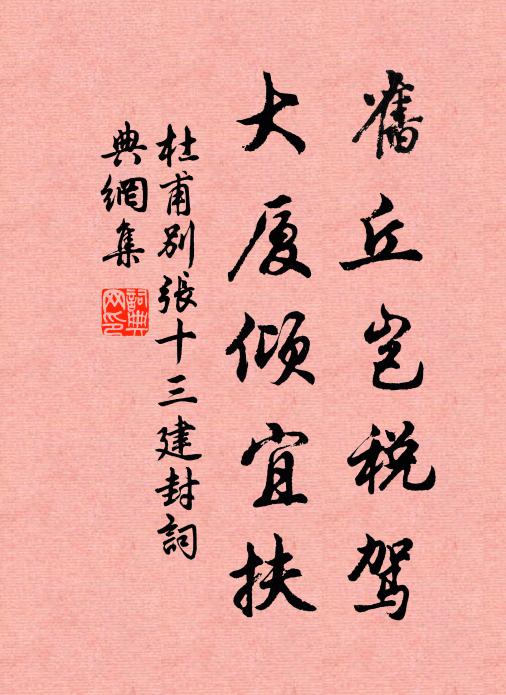 舊丘岂税驾
大厦倾宜扶
杜甫别張十三建封詞
典網集
詞典网印